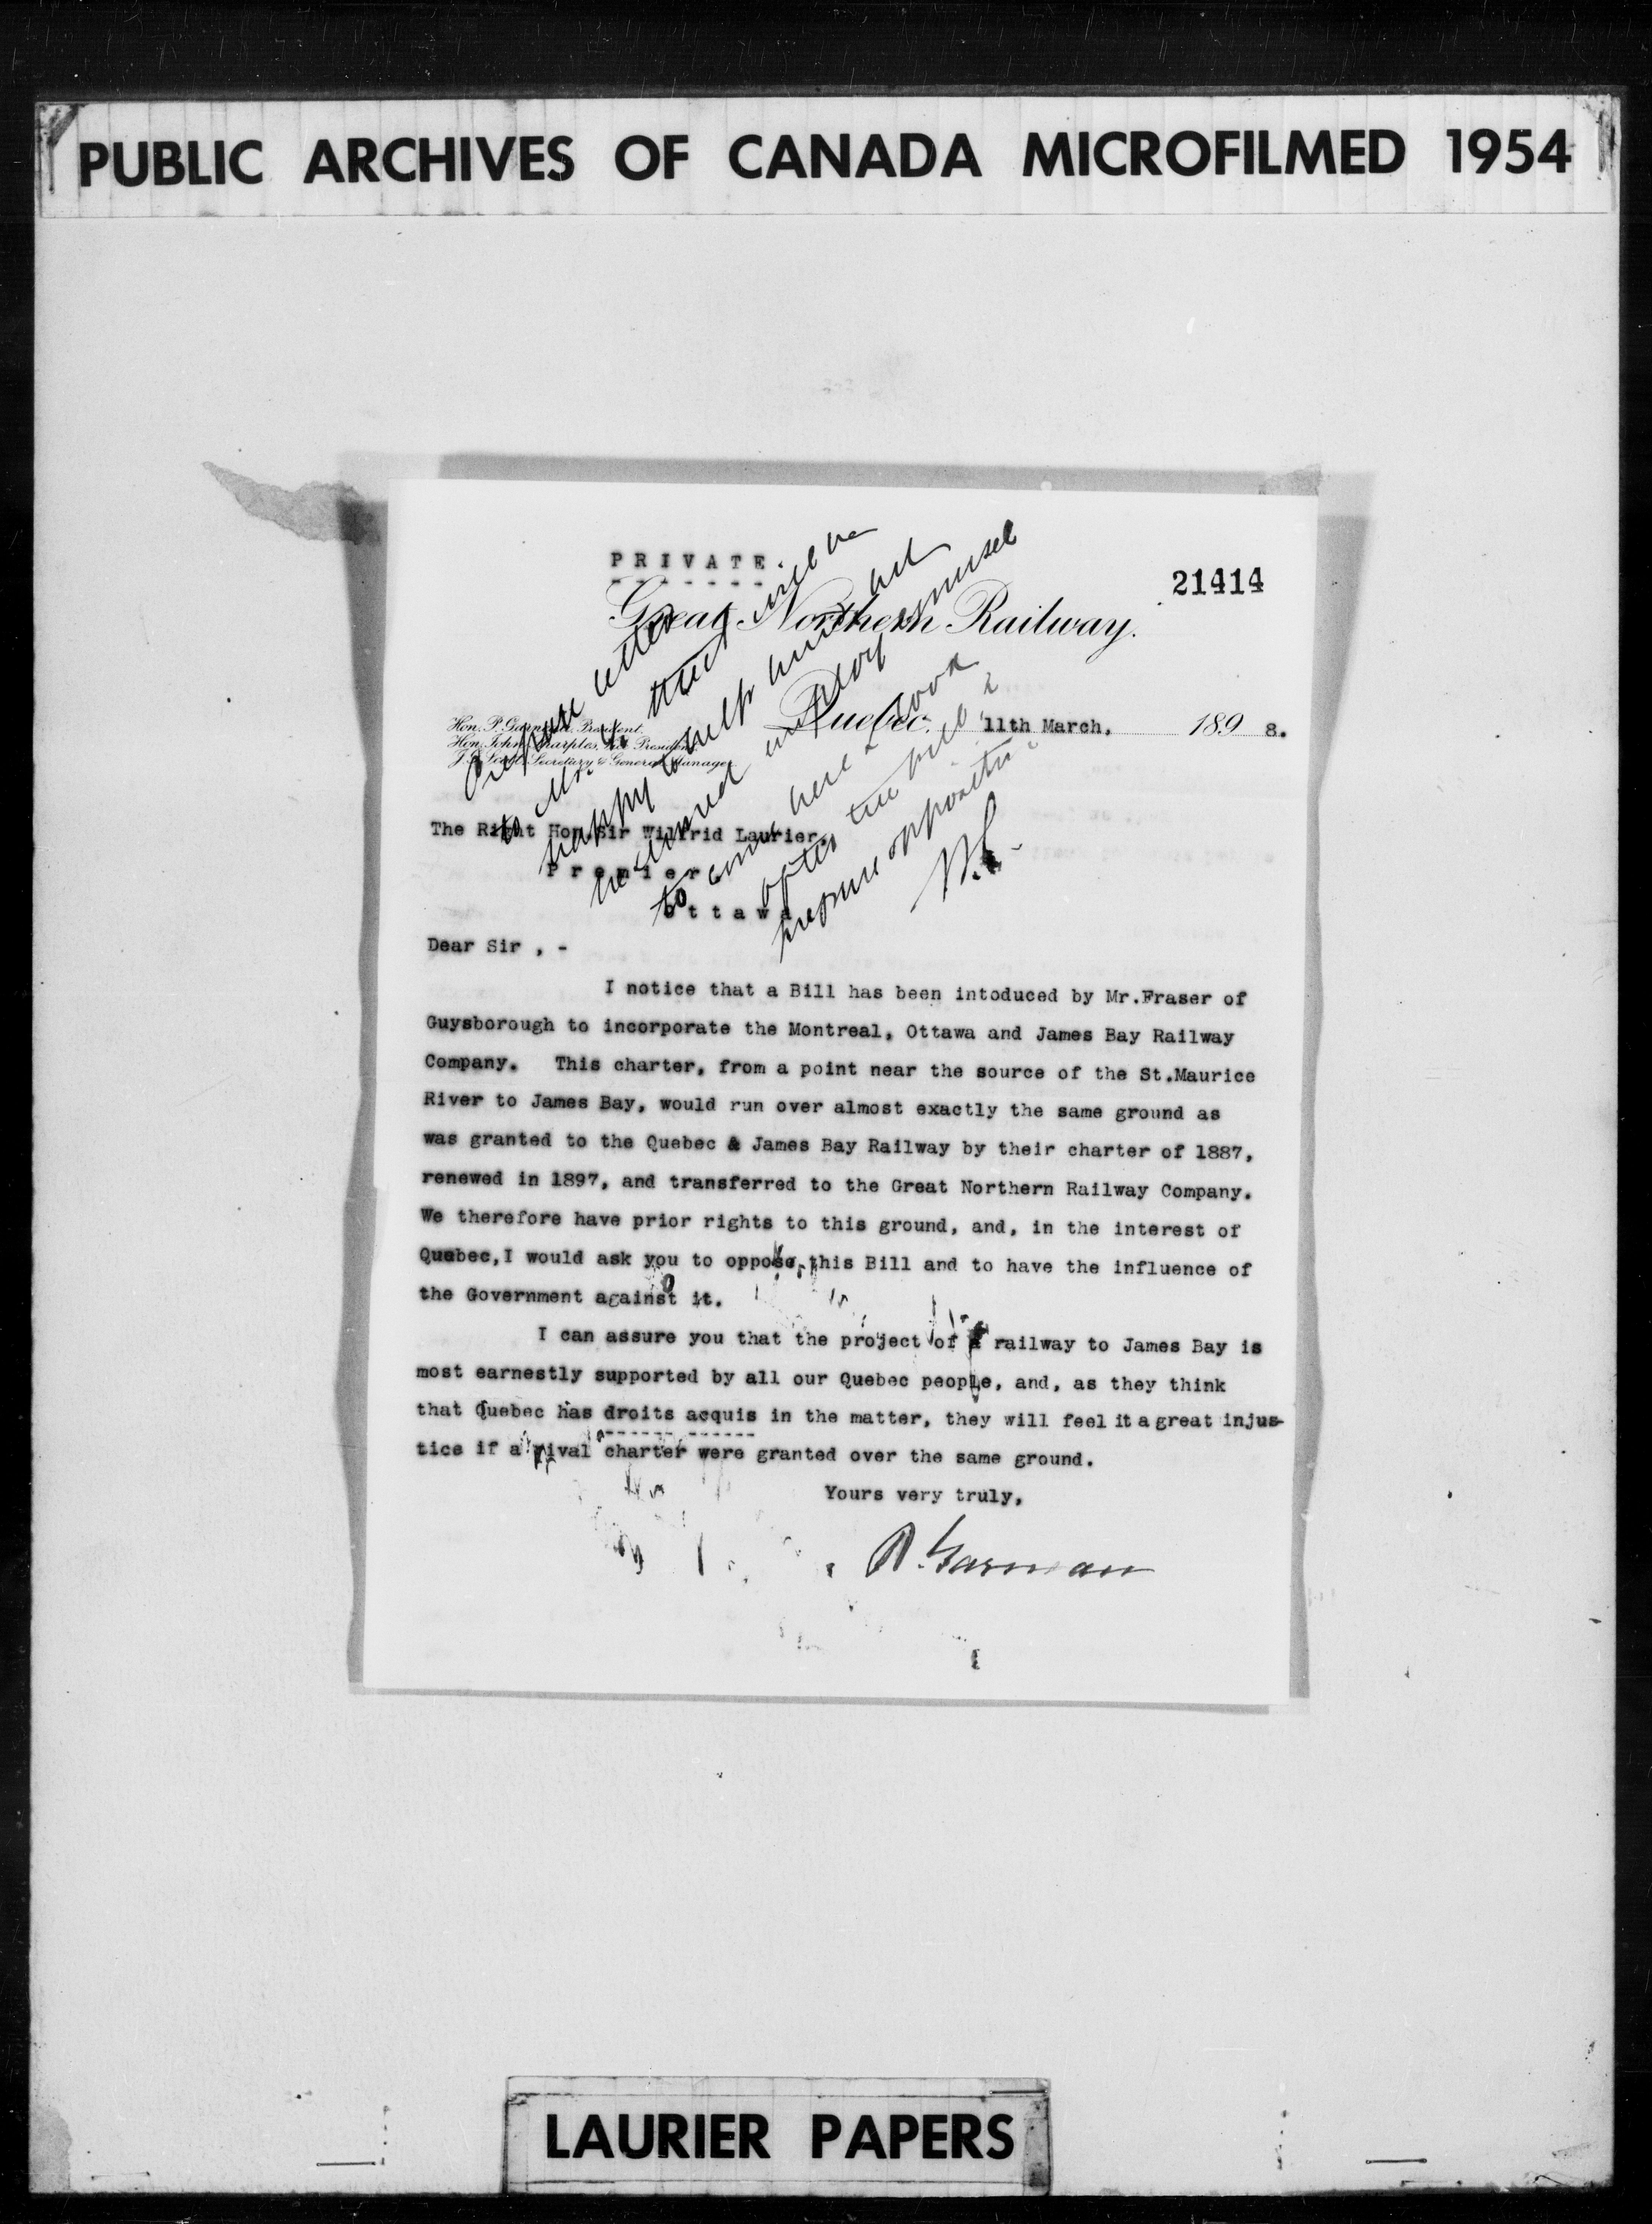 PUBLIC ARCHIVES OF CANADA MICROFILMED 1954
PRIVATE
21414
Great Northern Railway.
Quebec, 11th March, 1898.
Hon. P. Garneau, President.
Hon. John Sharples, Vice President.
J. G. Scott, Secretary & General Manager.
Prepare letter
to Mr. G that I will be
happy to help him but
he should employ counsel
to come here & look
after the bill &
prepare opposition
W.L.
The Right Hon. Sir Wilfrid Laurier,
Premier
Ottawa
Dear Sir , -
I notice that a Bill has been intoduced by Mr.Fraser of
Guysborough to incorporate the Montreal, Ottawa and James Bay Railway
Company. This charter, from a point near the source of the St.Maurice
River to James Bay, would run over almost exactly the same ground as
was granted to the Quebec & James Bay Railway by their charter of 1887,
renewed in 1897, and transferred to the Great Northern Railway Company.
We therefore have prior rights to this ground, and, in the interest of
Quebec, I would ask you to oppose this Bill and to have the influence of
the Government against it.
I can assure you that the project of a railway to James Bay is
most earnestly supported by all our Quebec people, and, as they think
that Quebec has droits acquis in the matter, they will feel it a great injus-
tice if a rival charter were granted over the same ground.
Yours very truly,
P. Garneau
LAURIER PAPERS